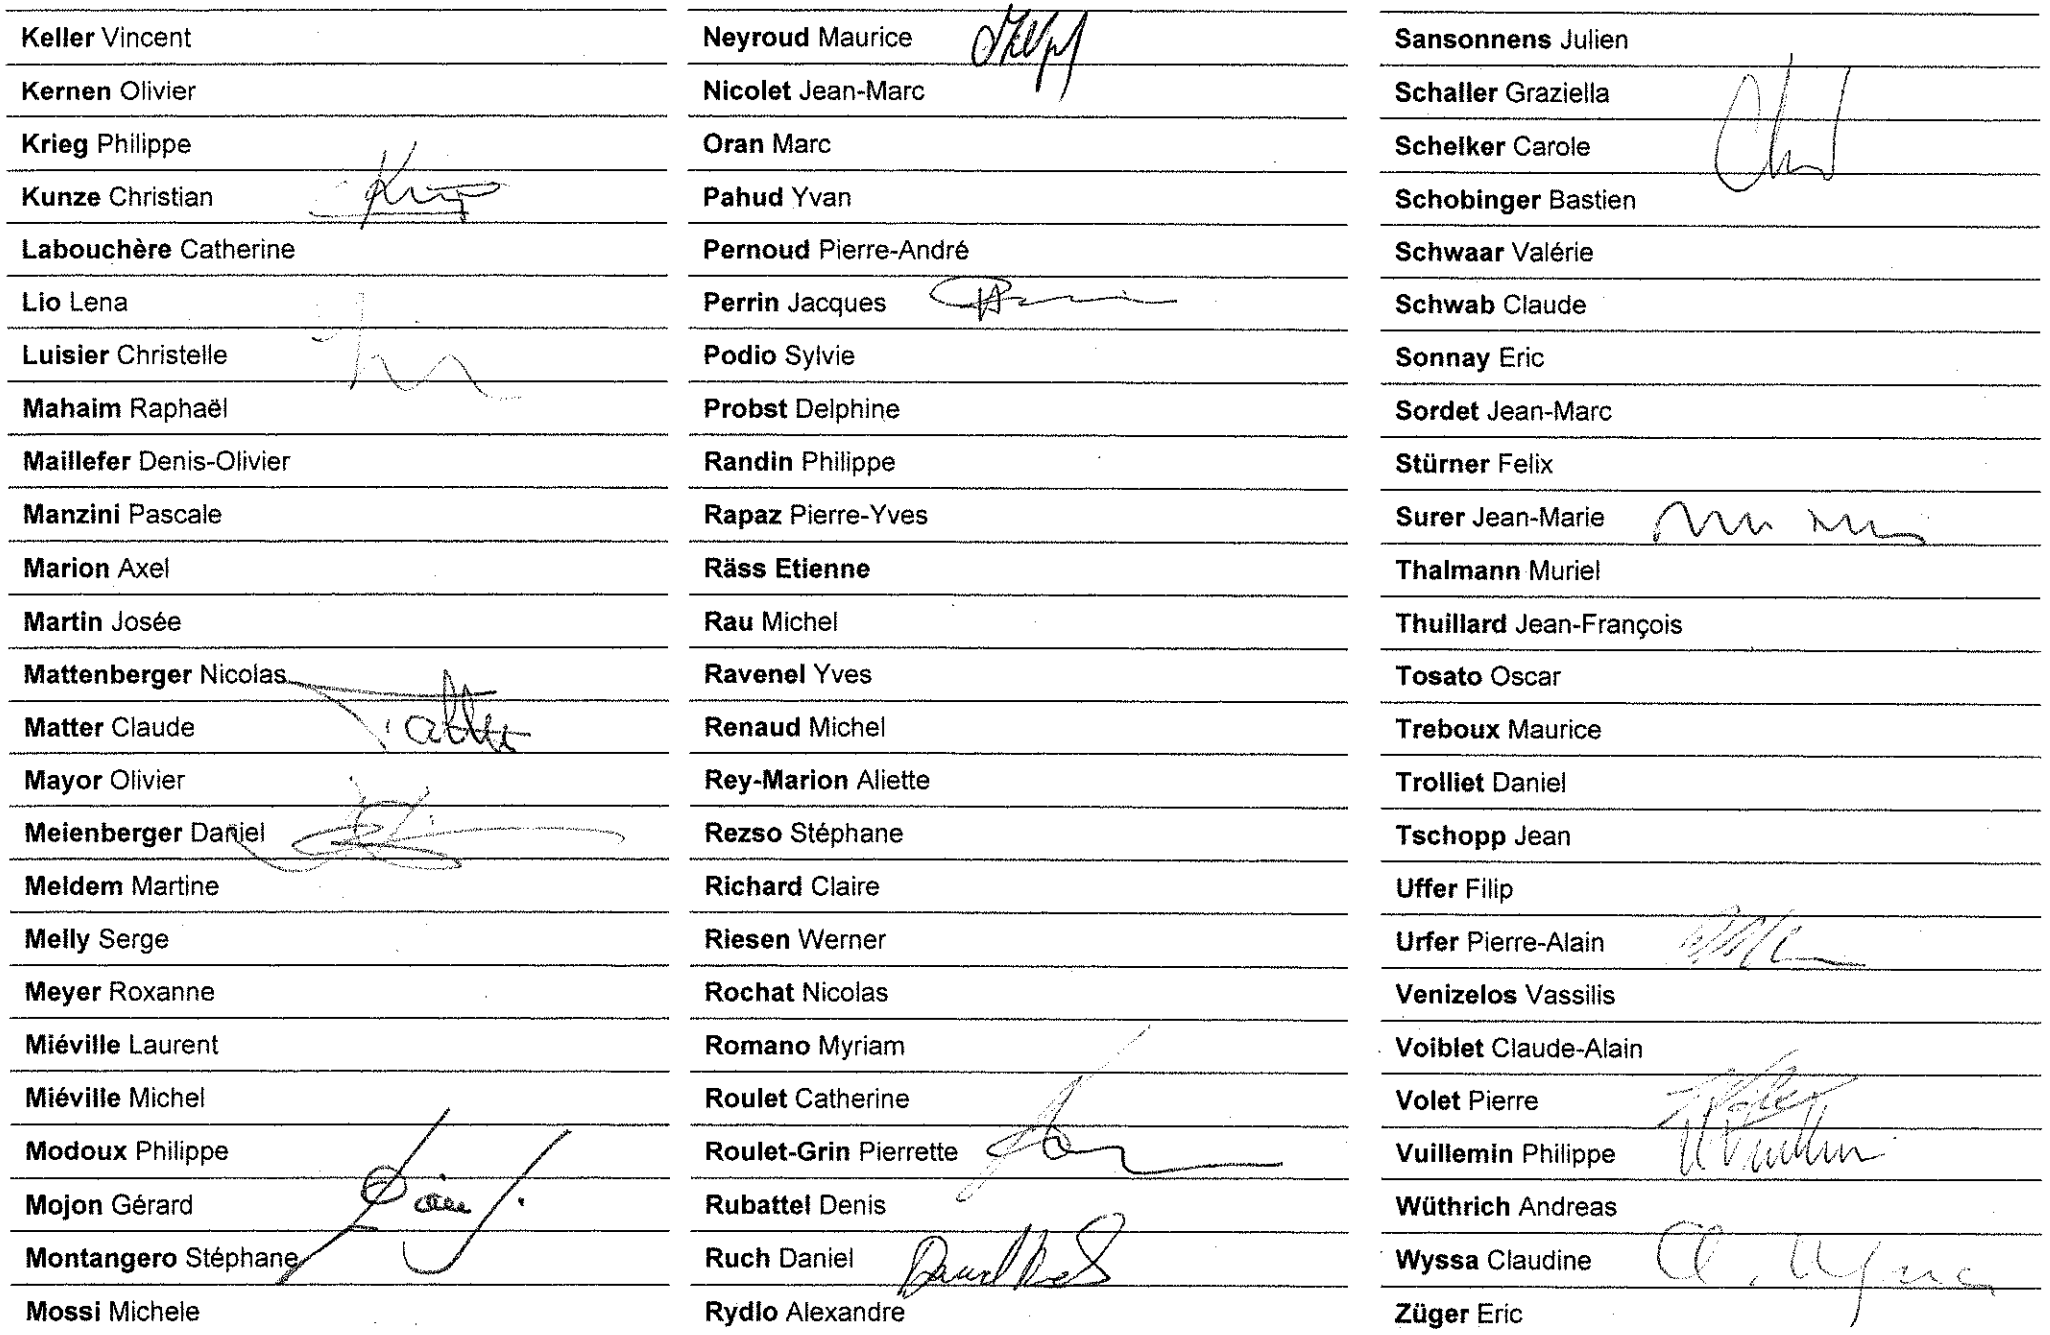 Keller Vincent
Kernen Olivier
Krieg Philippe
Kunze Christian
Labouchère Catherine
Lio Lena
Luisier Christelle
Mahaim Raphaël
Maillefer Denis-Olivier
Manzini Pascale
Marion Axel
Martin Josée
Mattenberger Nicolas
Matter Claude
Mayor Olivier
Meienberger Daniel
Meldem Martine
Melly Serge
Meyer Roxanne
Miéville Laurent
Miéville Michel
Modoux Philippe
Mojon Gérard
Montangero Stéphane
Mossi Michele
Neyroud Maurice
Nicolet Jean-Marc
Oran Marc
Pahud Yvan
Pernoud Pierre-André
Perrin Jacques
Podio Sylvie
Probst Delphine
Randin Philippe
Rapaz Pierre-Yves
Räss Etienne
Rau Michel
Ravenel Yves
Renaud Michel
Rey-Marion Aliette
Rezso Stéphane
Richard Claire
Riesen Werner
Rochat Nicolas
Romano Myriam
Roulet Catherine
Roulet-Grin Pierrette
Rubattel Denis
Ruch Daniel
Rydlo Alexandre
Sansonnens Julien
Schaller Graziella
Schelker Carole
Schobinger Bastien
Schwaar Valérie
Schwab Claude
Sonnay Eric
Sordet Jean-Marc
Stürner Felix
Surer Jean-Marie
Thalmann Muriel
Thuillard Jean-François
Tosato Oscar
Treboux Maurice
Trolliet Daniel
Tschopp Jean
Uffer Filip
Urfer Pierre-Alain
Venizelos Vassilis
Voiblet Claude-Alain
Volet Pierre
Vuillemin Philippe
Wüthrich Andreas
Wyssa Claudine
Züger Eric